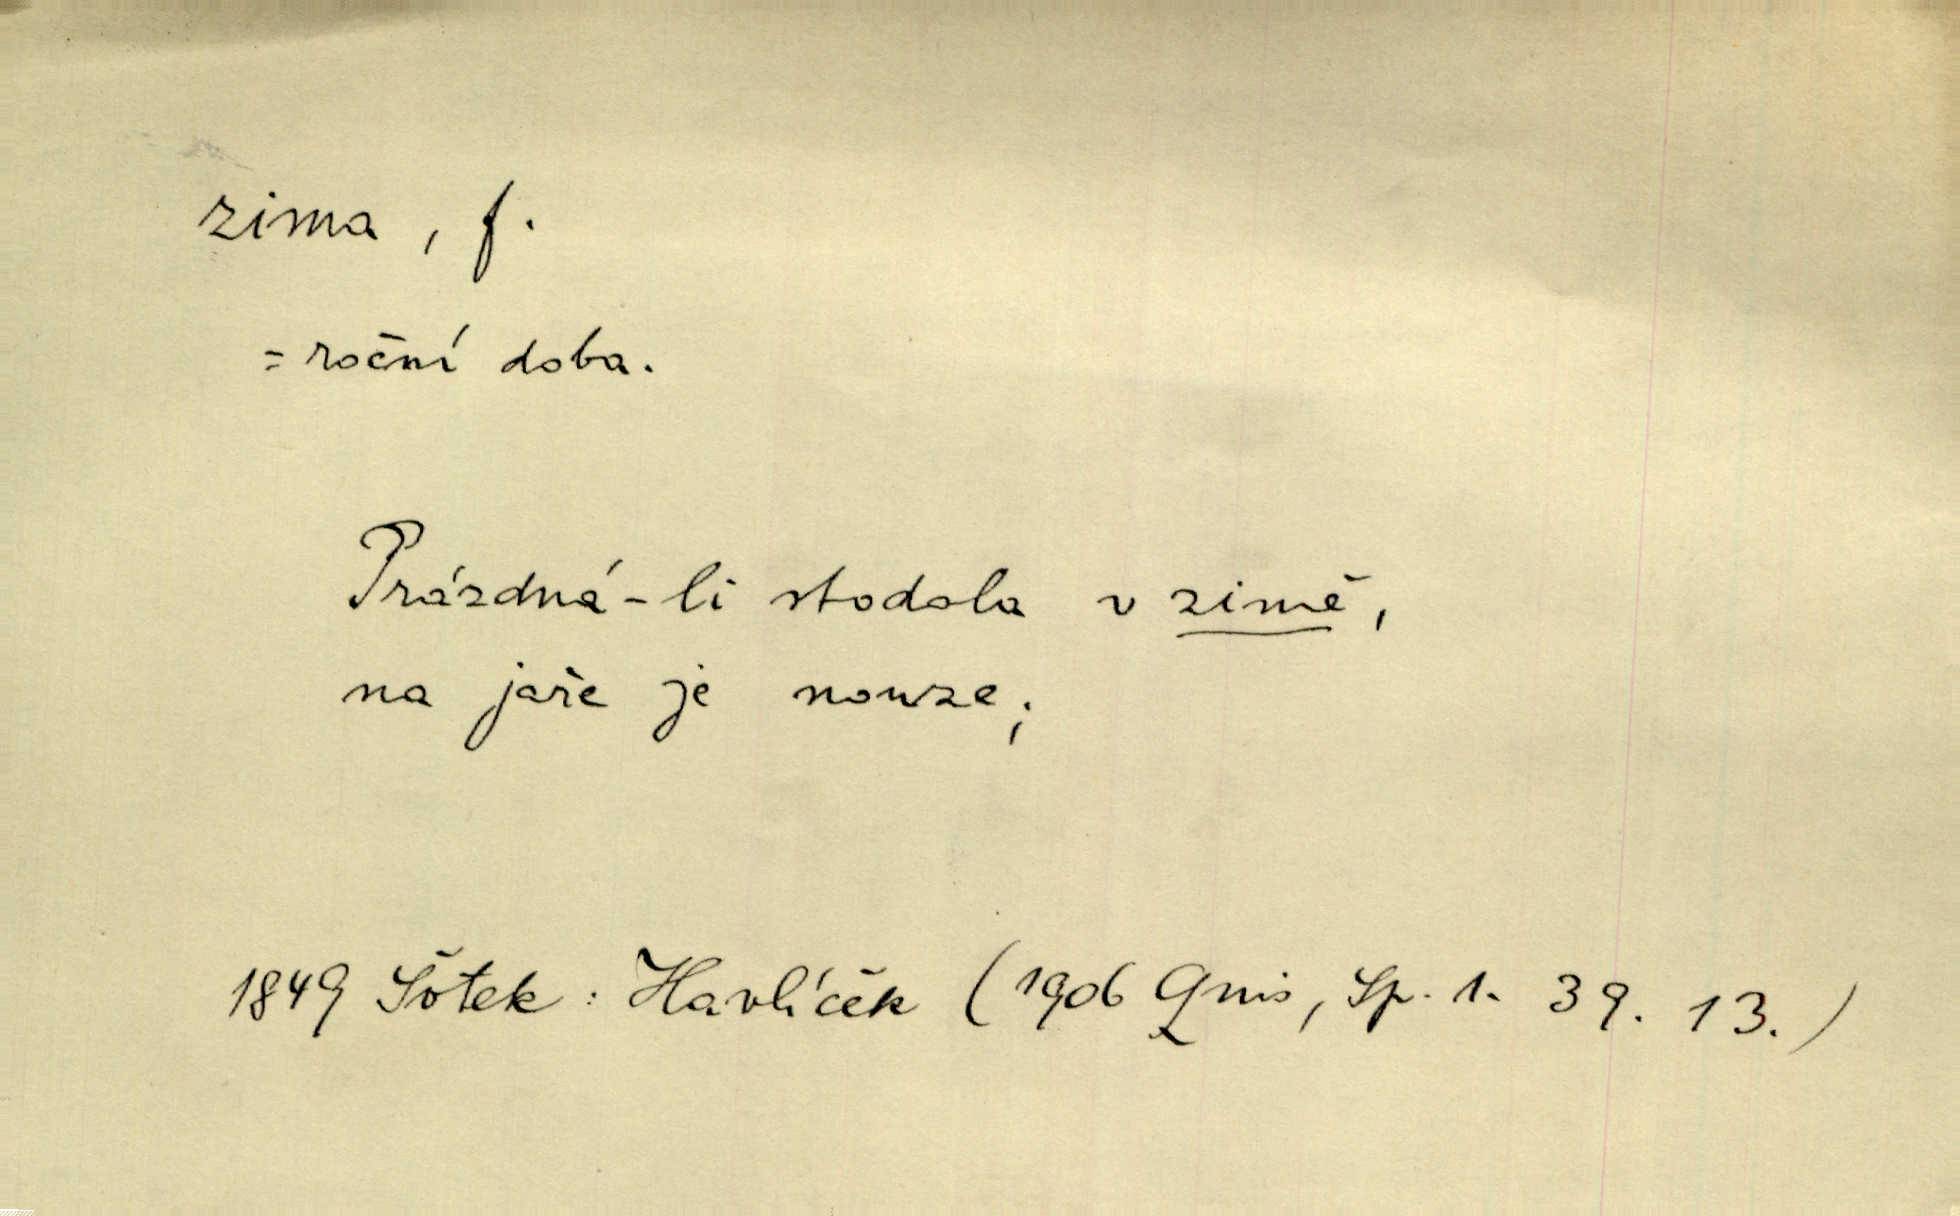 zima, f.
= roční doba.
Prázdná-li stodola v zimě,
na jaře je nouze;
1849 Šotek: Havlíček (1906 Quis, Sp. 1. 39. 13.)